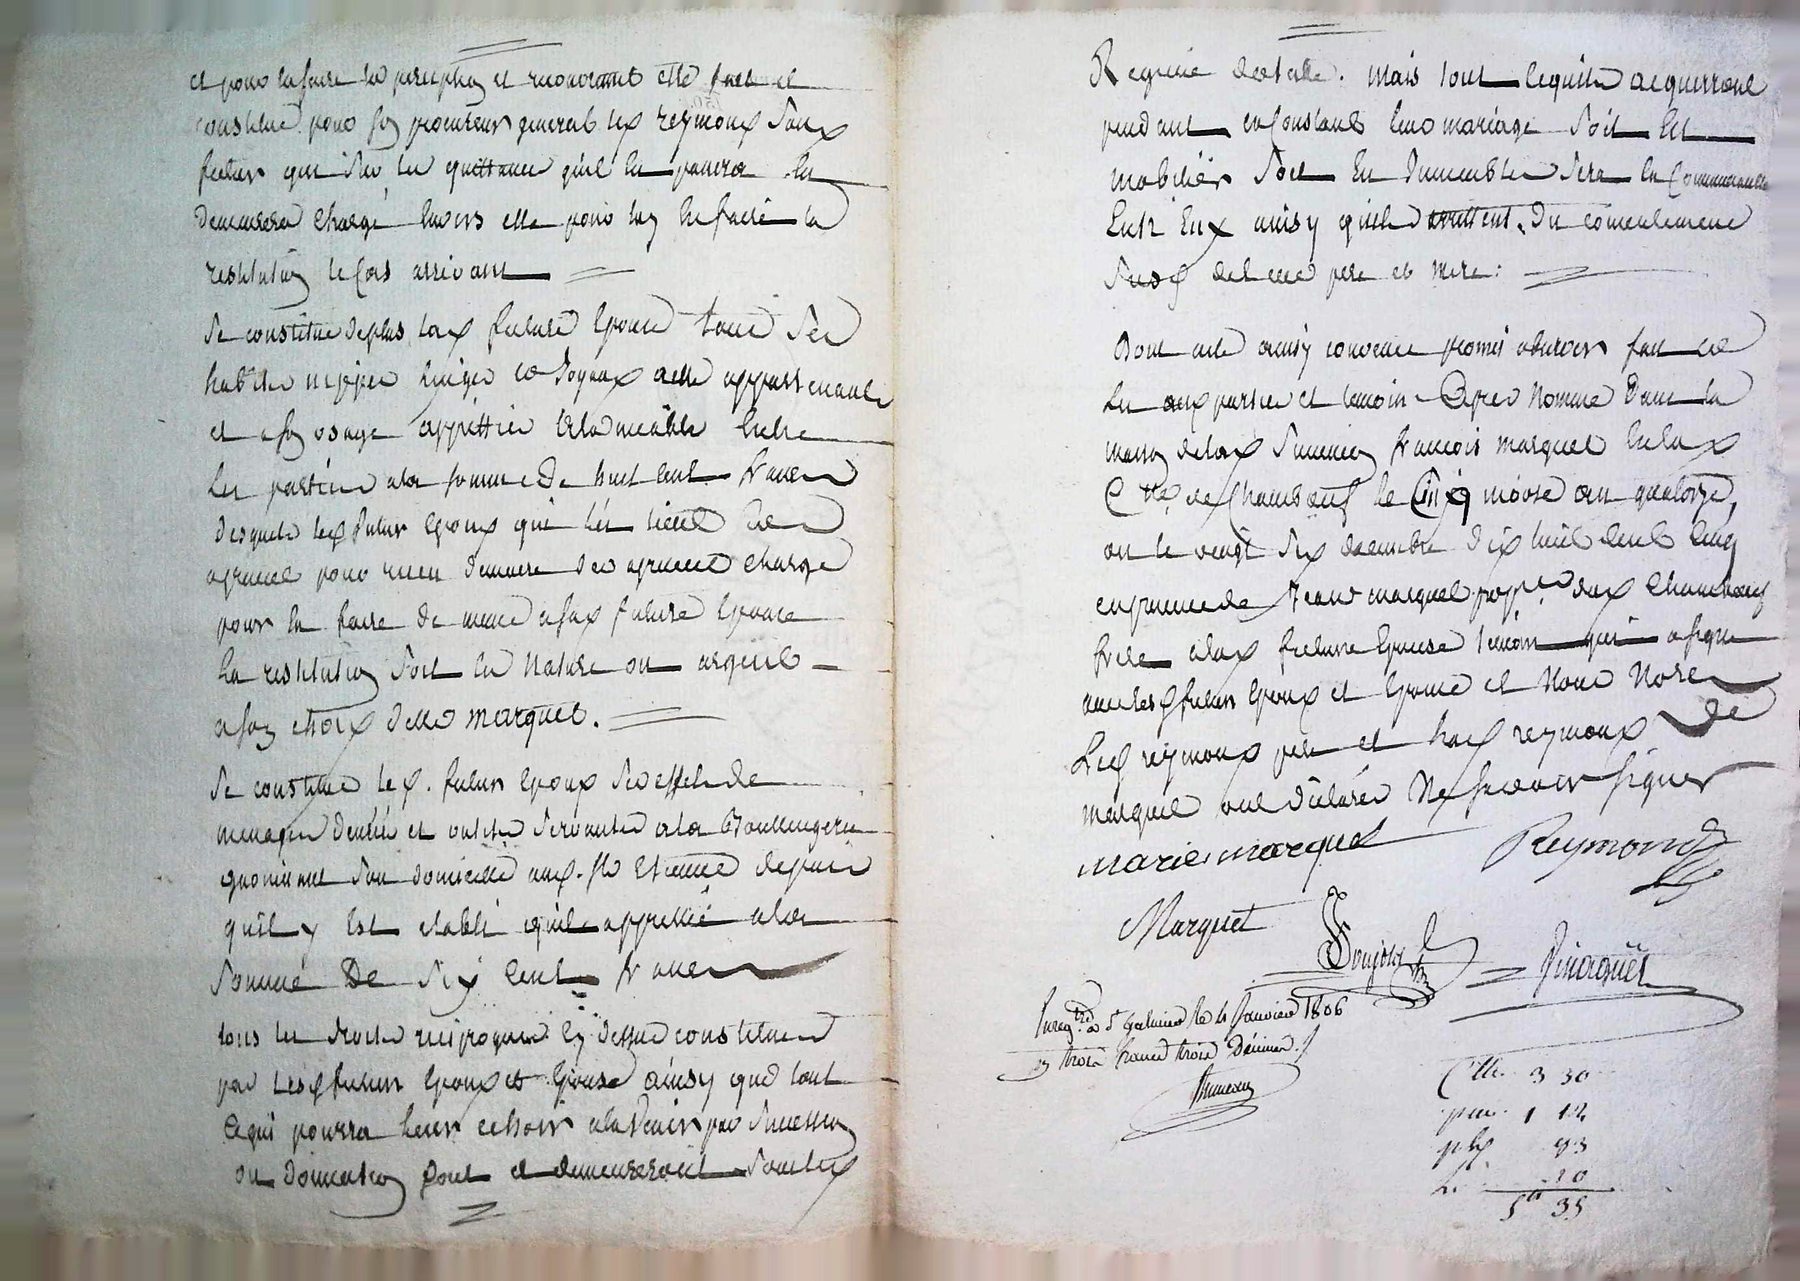 et pour en faire la perception et recouvrement elle fait et
constitue pour son procureur general led reymond son
futur qui sur les quittance qu'il en passera en
demeurera chargé envers elle pour luy en faire la
restitution le cas arrivant
Se constitue de plus lad future Epouse tous ses
habits nippes linges et Joyaux a elle appartenants
et a son usage apprétiés a l'amiable Entre
Les parties a la somme de huit cent francs
desquels led futur Epoux qui les a
agrement pour
pour en faire de meme a lad future Epouse
La restitution soit En Nature ou argent
a son choix d'elle marquet.
Se constitue led. futur Epoux ses effets de
menages denrée et outils servantes a la Boullengerie
garnissant son domicille aud. St Etienne depuis
qu'il y Est etabli qu'il apprettie a la
Somme De Six Cent francs
tous les droits reciproques Cy dessus constitués
par lesd futurs Epoux et Epouse ainsy que tout
Ce qui pourra leur echoir a l'avenir par Succession
ou Donnation sont et demeureront sous le
Regime dotalle. Mais tout ce qu'ils acquerront
pendant Constant leur mariage soit En
mobilier soit En Immeubles sera En Communauté
Entr'Eux ainsy qu'ils du consentement
Susd de leurs pere et mere:
Dont acte ainsy convenu promis observer fait et
Lu aux parties et temoin apres Nommé Dans la
maison dud Simmien francois marquet En lad
Cne de Chambœuf le Cinq nivose an quatorze,
ou le vingt six decembre dix huit cent cinq
en presence de marquet propre dud Chambœuf
frere a lad future Epouse temoin qui a signé
avec lesd futur Epoux et Epouse et Nous Notre
Led reymond pere et lad reymond De
marquet ont déclaré Ne Savoir signer
marie marquet Reymond
Marquet
Enregtré a St Galmier le 4 Janvier 1806
reçu trois francs trois Décimes
Ctte 3 30
1 12
93
10
5 35